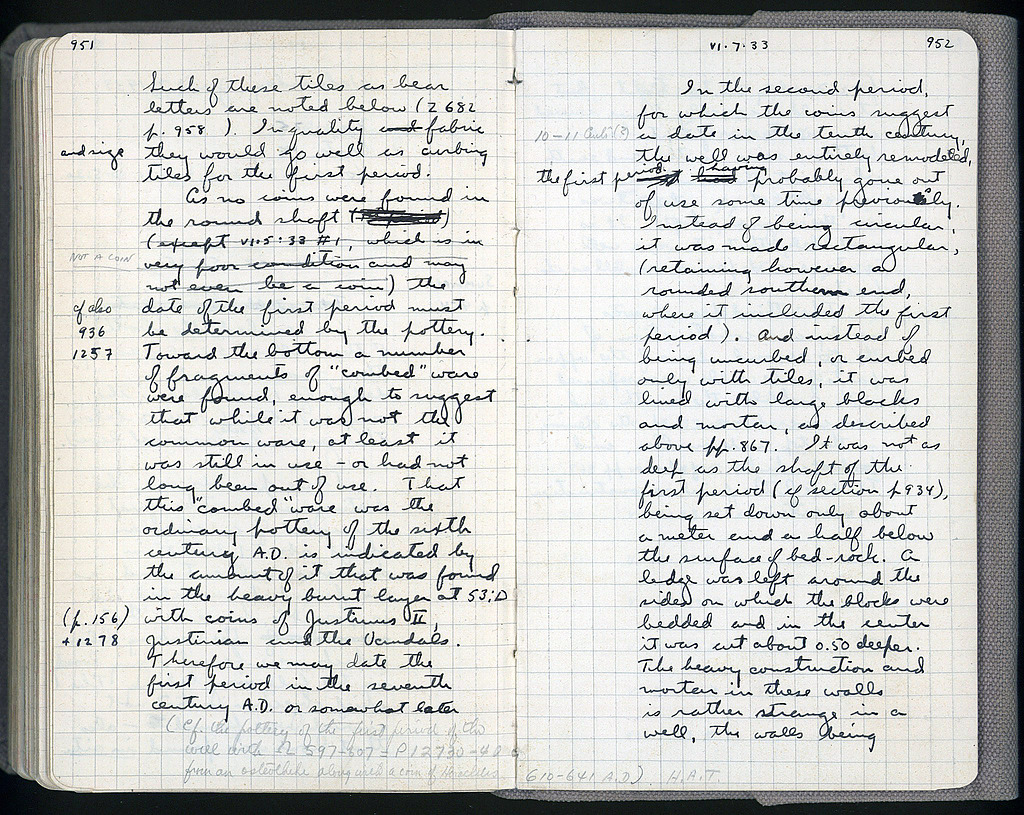 951
Such of these tiles as bear
letters are noted below (Z 682
p. 958 ). In quality and fabric
and size they would go well as curbing
tiles for the first period.
As no coins were found in
the round shaft
(except VI·5·33 #1, which is in
NOT A COIN very poor condition and may
not even be a coin) the
cf also date of the first period must
936 be determined by the pottery.
1257 Toward the bottom a number
of fragments of "combed" ware
were found, enough to suggest
that while it was not the
common ware, at least it
was still in use – or had not
long been out of use. That
this "combed" ware was the
ordinary pottery of the sixth
century A.D. is indicated by
the amount of it that was found
in the heavy burnt layer at 53:D
(p. 156) with coins of Justinus II,
+ 1278 Justinian and the Vandals.
Therefore we may date the
first period in the seventh
century A.D. or somewhat later
(Cf. the pottery of the first period of the
well with 597-307 – P 12730-40
from an osteotheke along with a coin of Heraclius 610-641 A.D.) H.A.T.
VI·7·33 952
In the second period,
for which the coins suggest
10-11 Cent (?) a date in the tenth century,
the well was entirely remodeled,
the first period having probably gone out
of use some time previously.
Instead of being circular,
it was made rectangular,
(retaining however a
rounded southern end,
where it included the first
period). And instead of
being uncurbed, or curbed
only with tiles, it was
lined with large blocks
and mortar, as described
above pp. 867. It was not as
deep as the shaft of the
first period (cf section p 934),
being set down only about
a meter and a half below
the surface of bed-rock. A
ledge was left around the
sides on which the blocks were
bedded and in the center
it was cut about 0.50 deeper.
The heavy construction and
mortar in these walls
is rather strange in a
well, the walls being